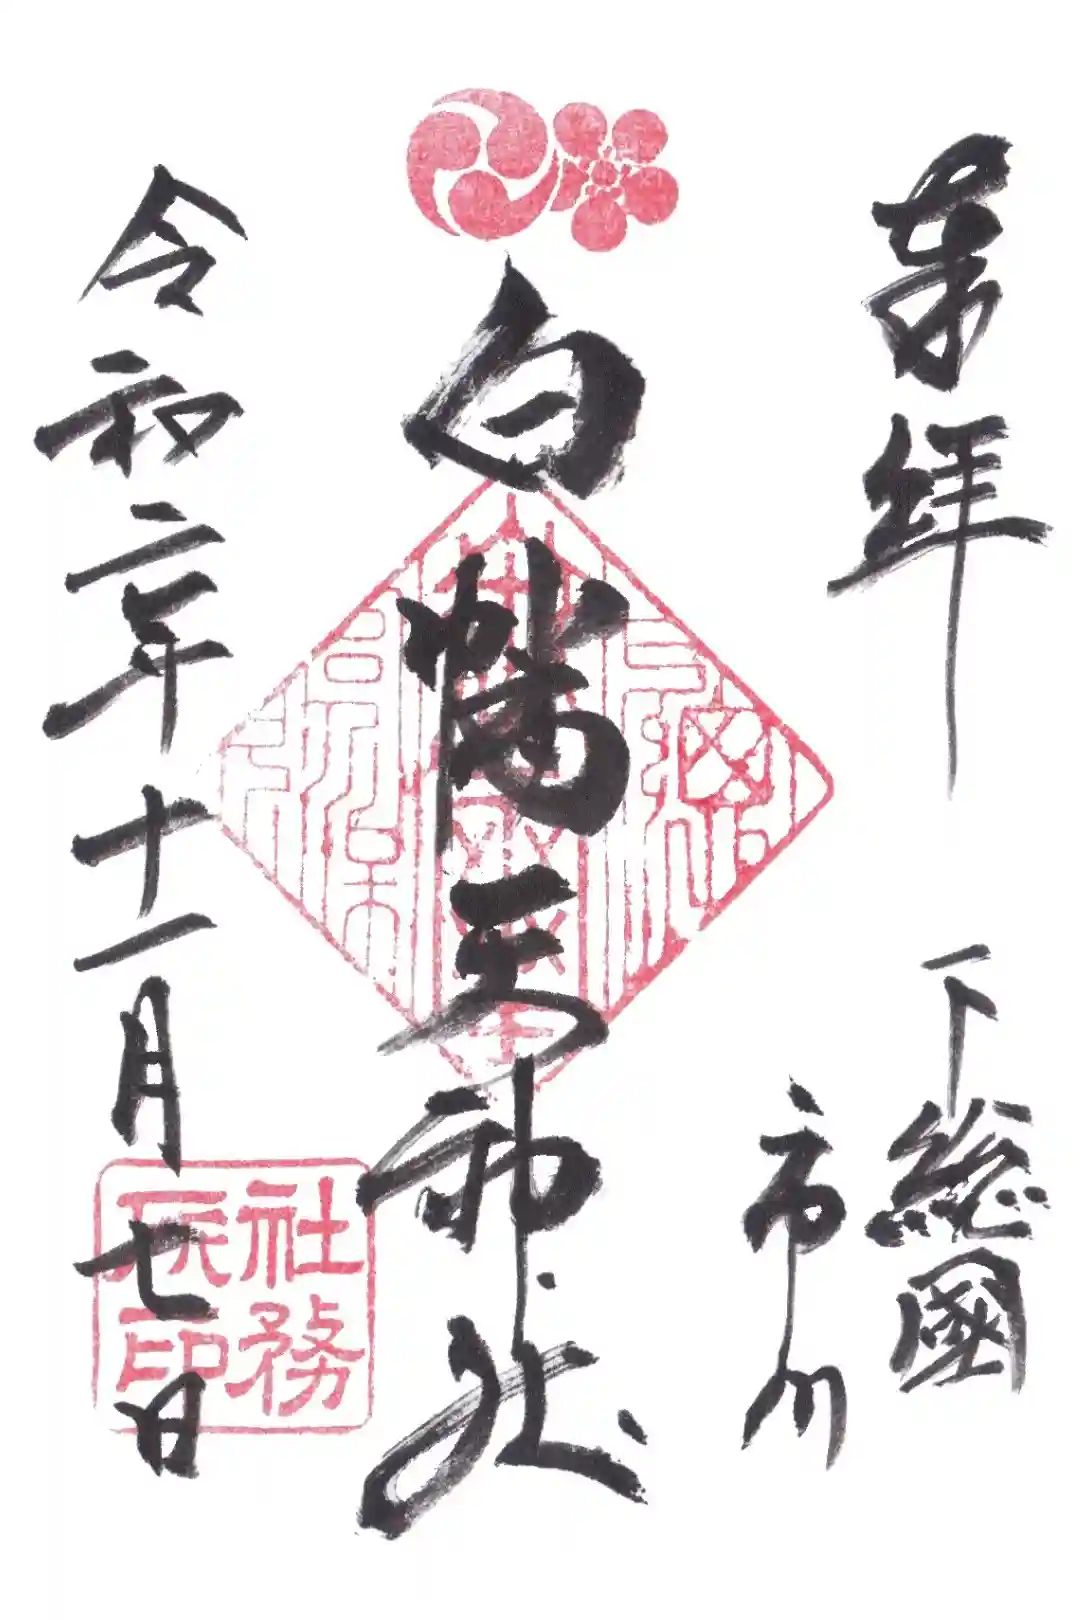 奉拝
下総國
市川
白幡天神社
令和二年十一月七日
社務
之印